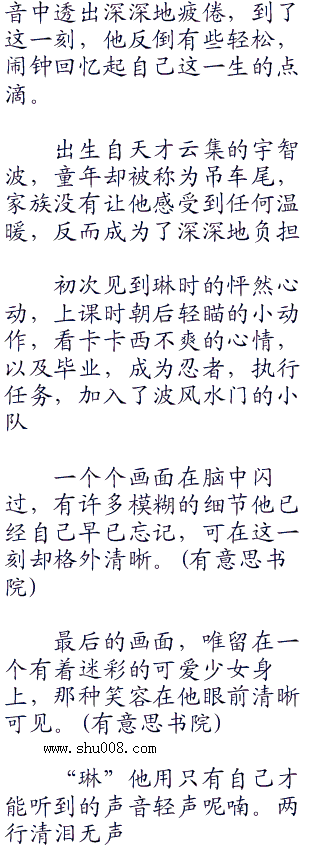 音中透出深深地疲倦，到了
这一刻，他反倒有些轻松，
闹钟回忆起自己这一生的点
滴。
出生自天才云集的宇智
波，童年却被称为吊车尾，
家族没有让他感受到任何温
暖，反而成为了深深地负担
初次见到琳时的怦然心
动，上课时朝后轻瞄的小动
作，看卡卡西不爽的心情，
以及毕业，成为忍者，执行
任务，加入了波风水门的小
队
一个个画面在脑中闪
过，有许多模糊的细节他已
经自己早已忘记，可在这一
刻却格外清晰。(有意思书
院)
最后的画面，唯留在一
个有着迷彩的可爱少女身
上，那种笑容在他眼前清晰
可见。(有意思书院)
www.shu008.com
“琳”他用只有自己才
能听到的声音轻声呢喃。两
行清泪无声